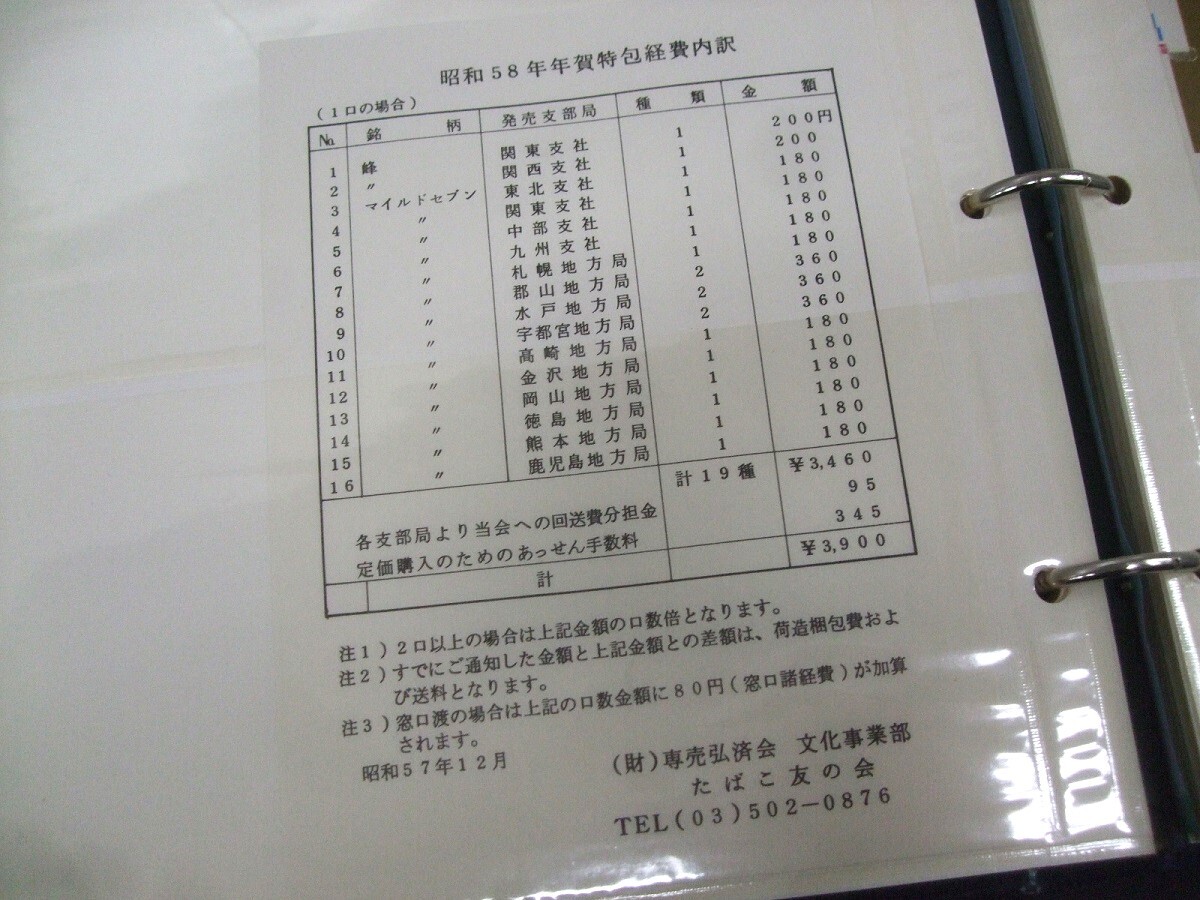 昭和58年年賀特包経費内訳
(1口の場合)
№ 銘柄 発売支部局 種類 金額
1 峰 関東支社 1 200円
2 〃 関西支社 1 200
3 マイルドセブン 東北支社 1 180
4 〃 関東支社 1 180
5 〃 中部支社 1 180
6 〃 九州支社 1 180
7 〃 札幌地方局 1 180
8 〃 郡山地方局 2 360
9 〃 水戸地方局 2 360
10 〃 宇都宮地方局 2 360
11 〃 高崎地方局 1 180
12 〃 金沢地方局 1 180
13 〃 岡山地方局 1 180
14 〃 徳島地方局 1 180
15 〃 熊本地方局 1 180
16 〃 鹿児島地方局 1 180
計19種 ¥3,460
各支部局より当会への回送費分担金 95
定価購入のためのあっせん手数料 345
計 ¥3,900
注1)2口以上の場合は上記金額の口数倍となります。
注2)すでにご通知した金額と上記金額との差額は、荷造梱包費およ
び送料となります。
注3)窓口渡の場合は上記の口数金額に80円(窓口諸経費)が加算
されます。
昭和57年12月
(財)専売弘済会 文化事業部
たばこ友の会
TEL(03)502-0876